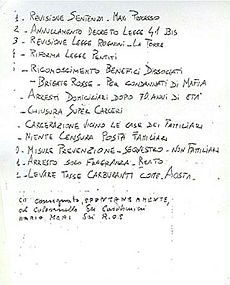 1. REVISIONE SENTENZA - MAXI PROCESSO
2. ANNULLAMENTO DECRETO LEGGE 41 BIS
3 - REVISIONE LEGGE ROGNONI - LA TORRE
RIFORMA LEGGE PENTITI
- RICONOSCIMENTO BENEFICI DISSOCIATI
- BRIGATE ROSSE - PER CONDANNATI DI MAFIA
- ARRESTI DOMICILIARI DOPO 70 ANNI DI ETA'
- CHIUSURA SUPER CARCERI
- CARCERAZIONE VICINO LE CASE DEI FAMILIARI
- NIENTE CENSURA POSTA FAMILIARI
- MISURE PREVENZIONE - SEQUESTRO - NON FAMILIARI
- ARRESTO SOLO FRAGRANZA - REATO
- LEVARE TASSE CARBURANTI COME AOSTA
consegnato SPONTANEAMENTE
al Colonnello dei Carabinieri
MARIO MORI dei R.O.S